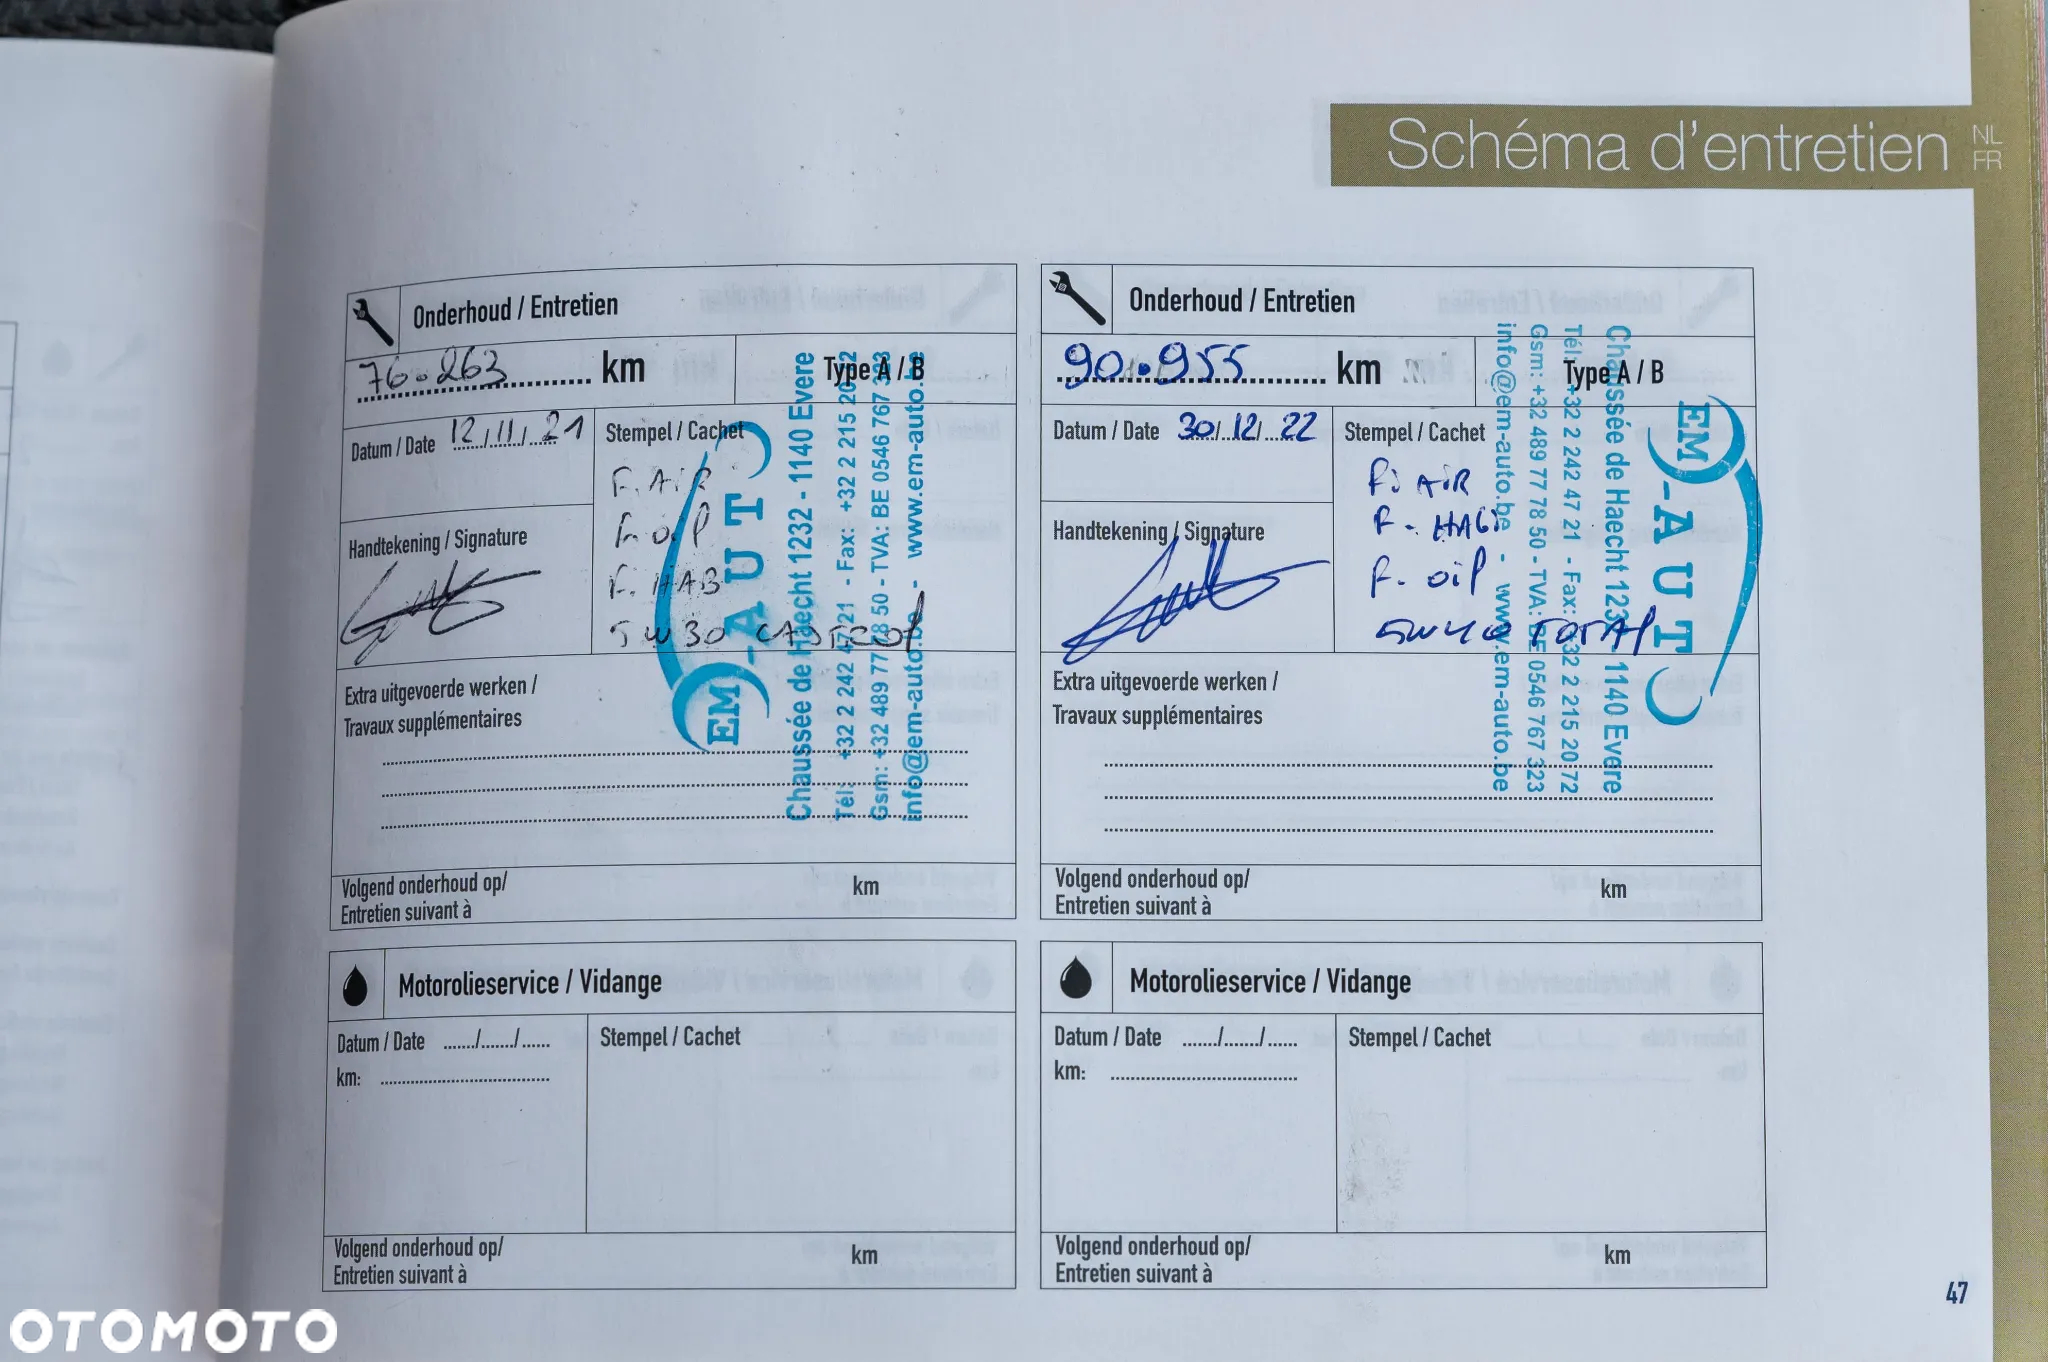 Schéma d'entretien
NL
FR
Onderhoud / Entretien
76.263 km
Type A / B
Datum / Date 12/11/21
Stempel / Cachet
F. AiR
F. oil
F. HAB
5W30 CASTROl
Handtekening / Signature
EM-AUTO
Chaussée de Haecht 1232 - 1140 Evere
Tél: +32 2 242 47 21 - Fax: +32 2 215 20 72
Gsm: +32 489 77 78 50 - TVA: BE 0546 767 323
info@em-auto.be - www.em-auto.be
Extra uitgevoerde werken /
Travaux supplémentaires
Volgend onderhoud op/
Entretien suivant à
km
Onderhoud / Entretien
90.955 km
Type A / B
Datum / Date 30/12/22
Stempel / Cachet
F. AiR
F. HAB
F. oil
5W40 TOTAl
Handtekening / Signature
EM-AUTO
Chaussée de Haecht 1232 - 1140 Evere
Tél: +32 2 242 47 21 - Fax: +32 2 215 20 72
Gsm: +32 489 77 78 50 - TVA: BE 0546 767 323
info@em-auto.be - www.em-auto.be
Extra uitgevoerde werken /
Travaux supplémentaires
Volgend onderhoud op/
Entretien suivant à
km
Motorolieservice / Vidange
Datum / Date ......./......./......
Stempel / Cachet
km:
Volgend onderhoud op/
Entretien suivant à
km
Motorolieservice / Vidange
Datum / Date ......./......./......
Stempel / Cachet
km:
Volgend onderhoud op/
Entretien suivant à
km
47
OTOMOTO